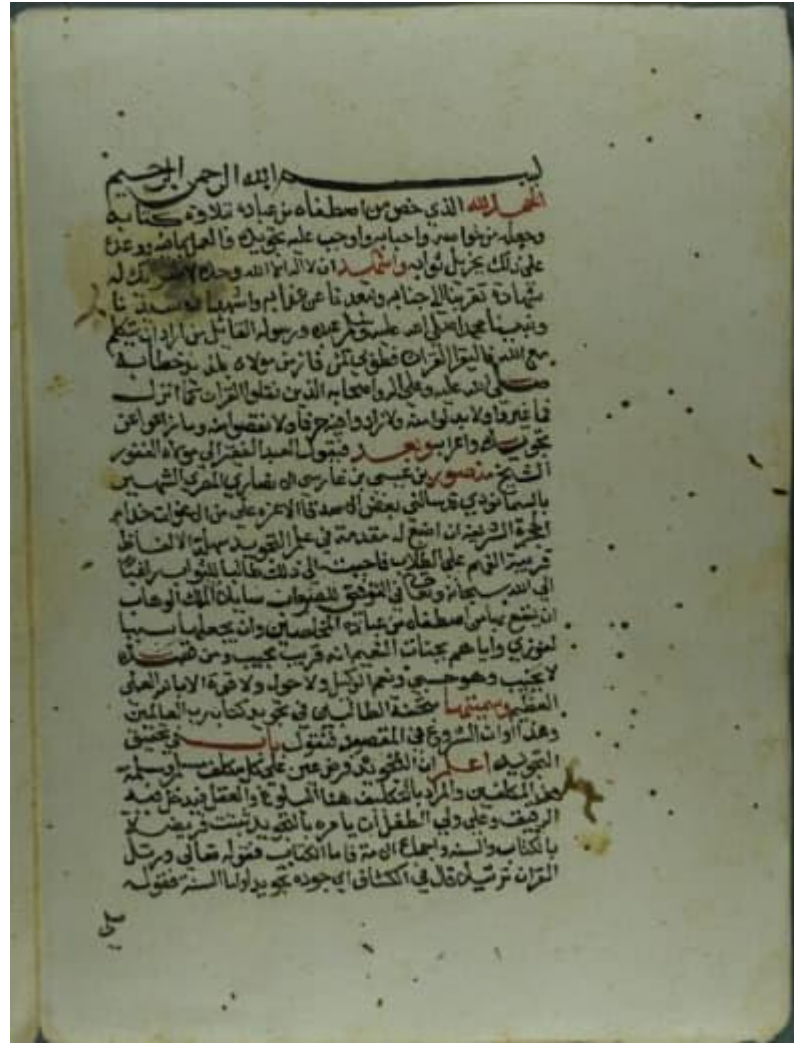 بسم الله الرحمن الرحيم
الحمد لله الذي خص من اصطفاه من عباده بتلاوة كتابه
وجعله من خواصه واحبابه واوجب عليه تجويده والعمل بما فيه ووعده
على ذلك بجزيل ثوابه واشهد ان لا اله الا الله وحده لا شريك له
شهادة تقربنا الى جنابه وتبعدنا عن عقابه واشهد ان سيدنا
ونبينا محمدا صلى الله عليه وسلم عبده ورسوله القايل من اراد ان يتكلم
مع الله فاليقرا القران فطوبى لمن فاز من مولاه بلذيذ خطابه
صلى الله عليه وعلى اله واصحابه الذين نقلوا القران كما انزل
فما غيروا ولا بدلوا منه ولا زادوا فيه حرفا ولا نقصوا منه وما زاغوا عن
تجويده واعرابه وبعد فيقول العبد الفقير الى مولاه الغفور
الشيخ منصور بن عيسى بن غازي الانصاري المقري الشهير
بالسمانودي قد سالني بعض الاصدقا الاعزه علي من الاخوان خدام
الحجرة الشريفة ان اضع له مقدمة في علم التجويد سهلة الالفاظ
قريبة الفهم على الطلاب فاجبته الى ذلك طالبا للثواب راغبا
الى الله سبحانه وتعالى في التوفيق للصواب سايلا الملك الوهاب
ان ينفع بها من اصطفاه من عباده المخلصين وان يجعلها سببا
لفوزي واياهم بجنات النعيم انه قريب مجيب ومن قصده
لا يخيب وهو حسبي ونعم الوكيل ولا حول ولا قوة الا بالله العلي
العظيم وسميتها تحفة الطالبين في تجويد كتاب رب العالمين
وهذا اوان الشروع في المقصود فنقول باب في تحقيق
التجويد اعلم ان التجويد فرض عين على كل مكلف مسلم ومسلمة
من المكلفين والمراد بالتكليف هنا البلوغ والعقل فيدخل فيه
الرقيق وعلى ولي الطفل ان يامره بالتجويد ثبتت فريضة
بالكتاب والسنة واجماع الامة فاما الكتاب فقوله تعالى ورتل
القران ترتيلا قال في الكشاف اي جوده تجويدا واما السنة فقوله